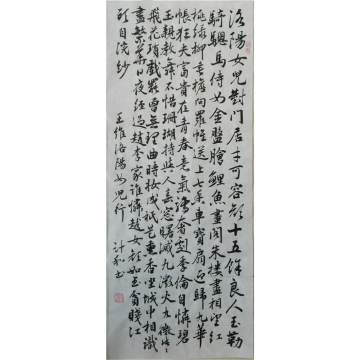 洛陽女兒對門居才可容顏十五餘良人玉勒
騎驄馬侍女金盤膾鯉魚畫閣朱樓盡相望紅
桃綠柳垂檐向羅帷送上七香車寶扇迎歸九華
帳狂夫富貴在青春意氣驕奢劇季倫自憐碧
玉親教舞不惜珊瑚持與人春窗曙滅九微火九微片片
飛花瑣戲罷曾無理曲時妝成祇是熏香坐城中相識
盡繁華日夜經過趙李家誰憐越女顏如玉貧賤江
頭自浣紗
王維洛陽女兒行 計和書